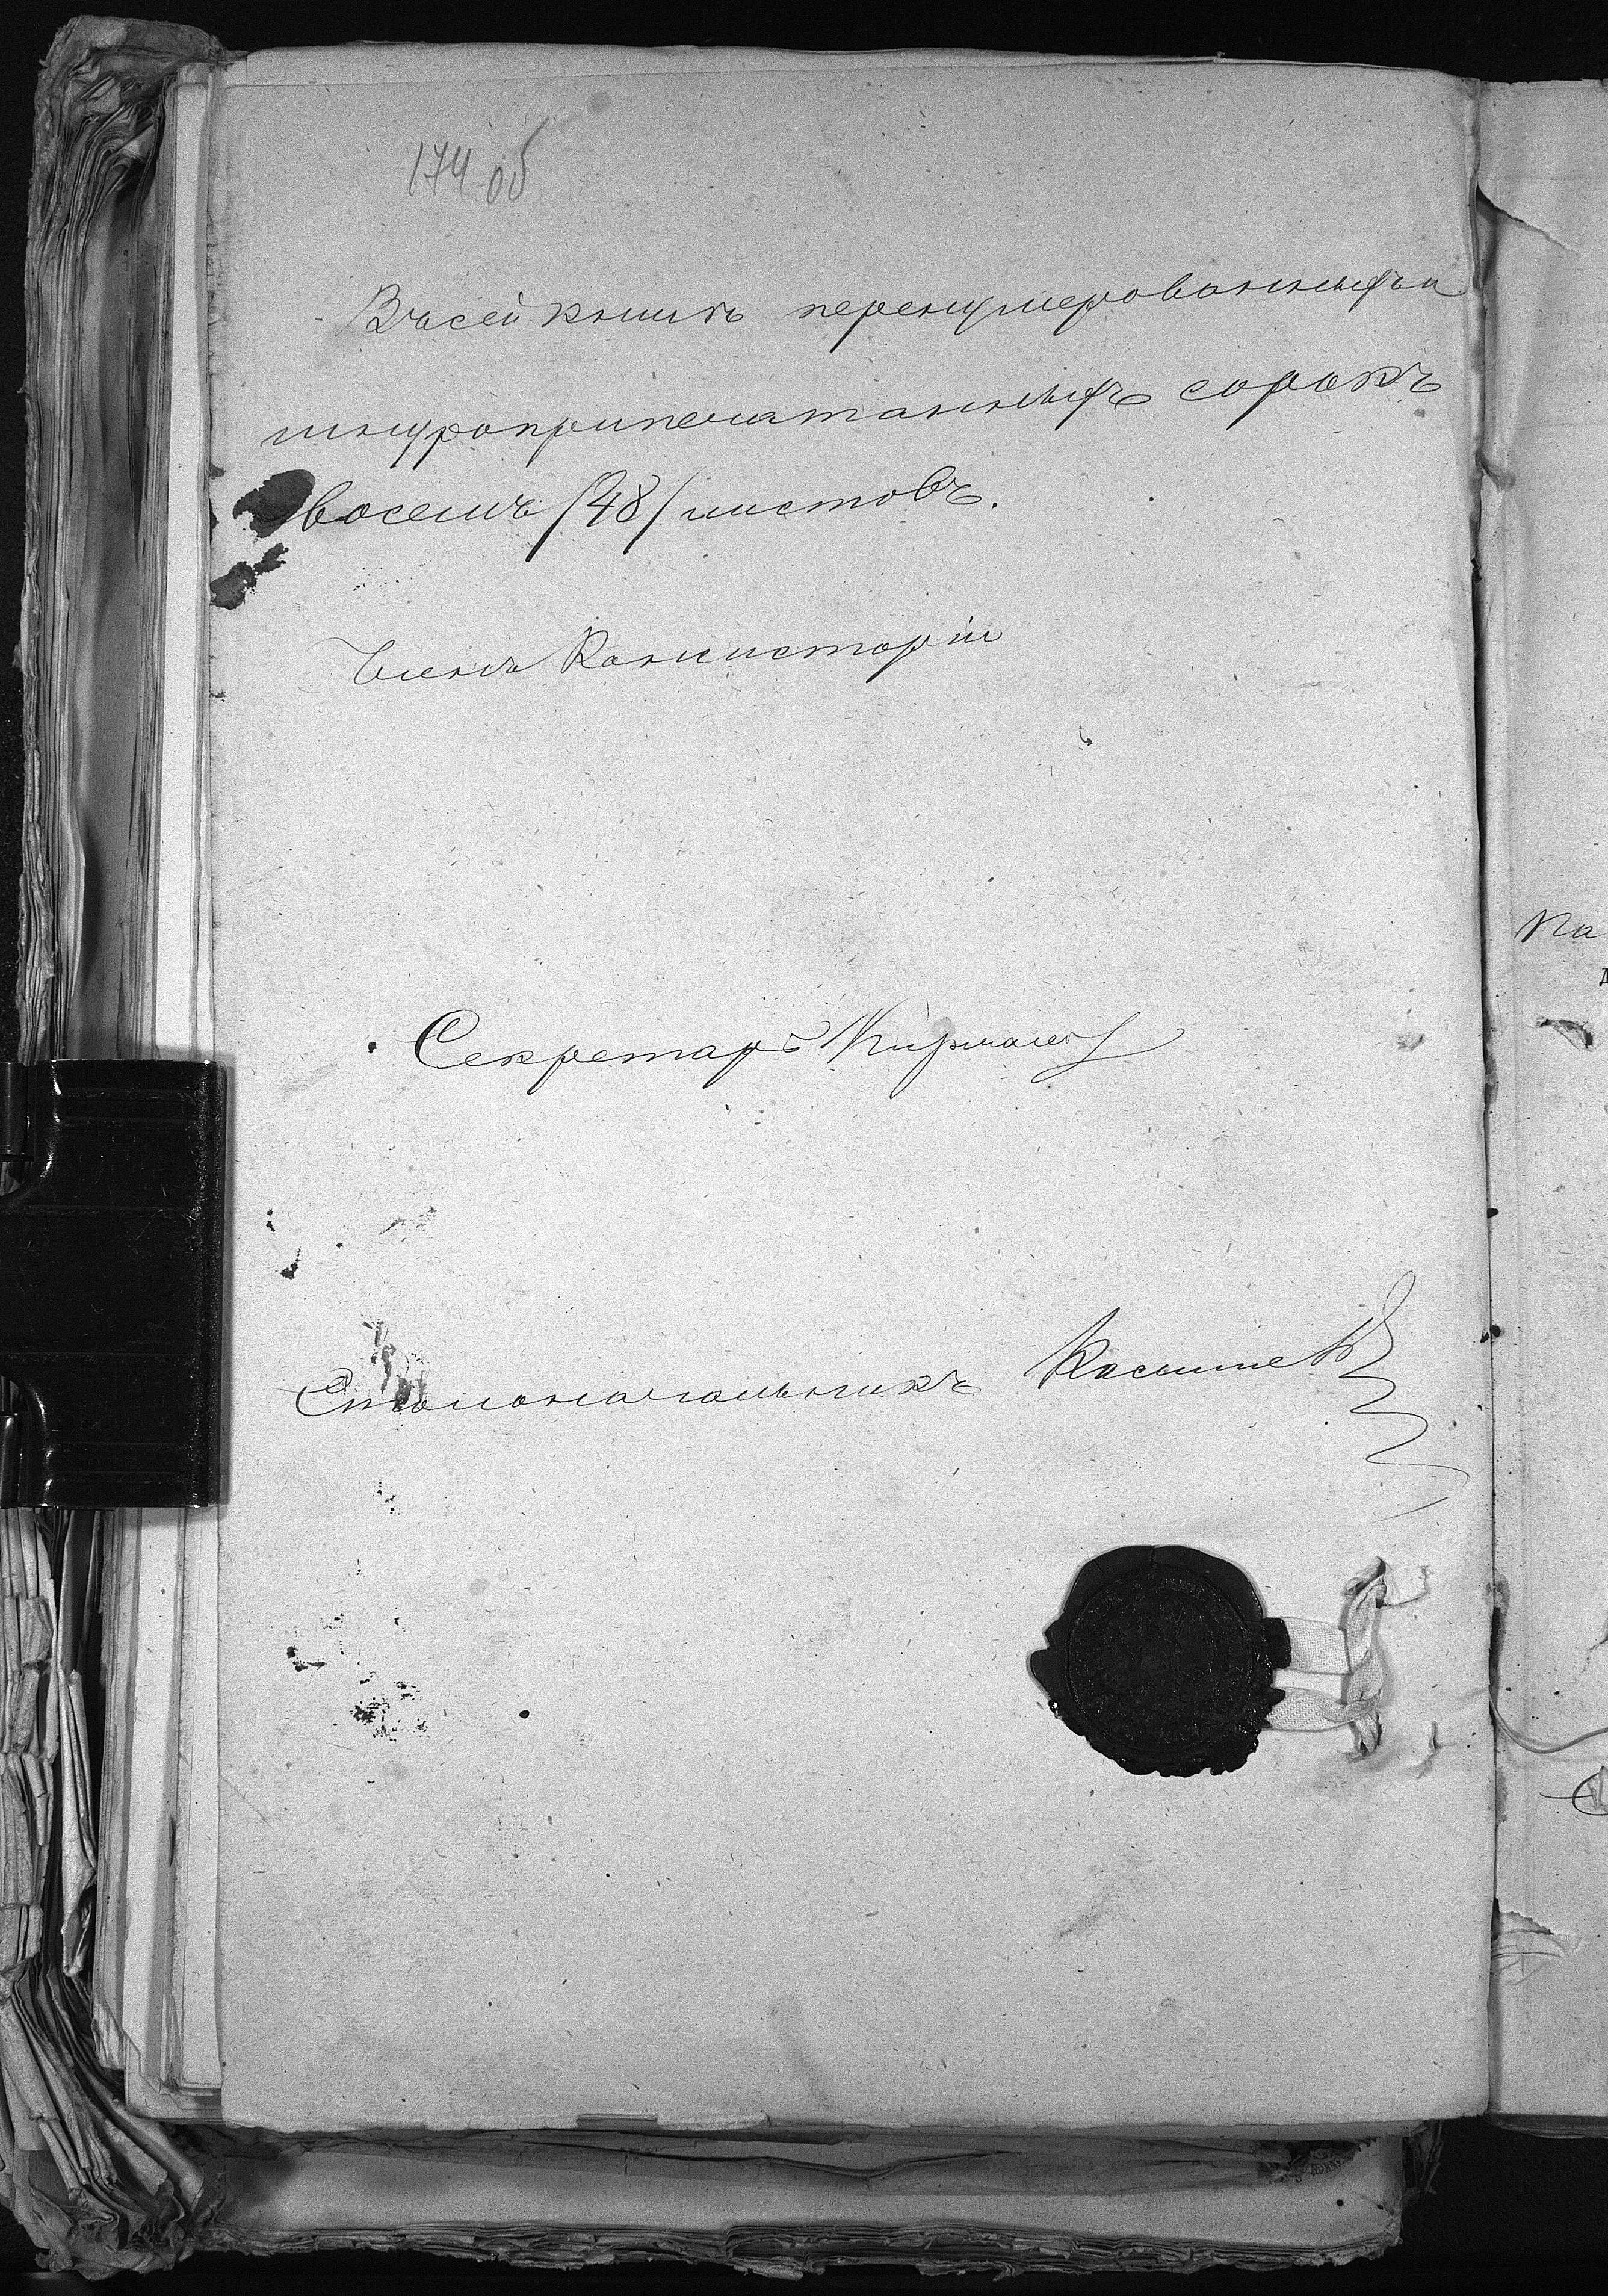 174 об
Въ сей книгѣ перенумерованныхъ и
шнуроприпечатанныхъ сорокъ
восемь /48/ листовъ.
Членъ Консисторіи
Секретарь
Столоначальникъ